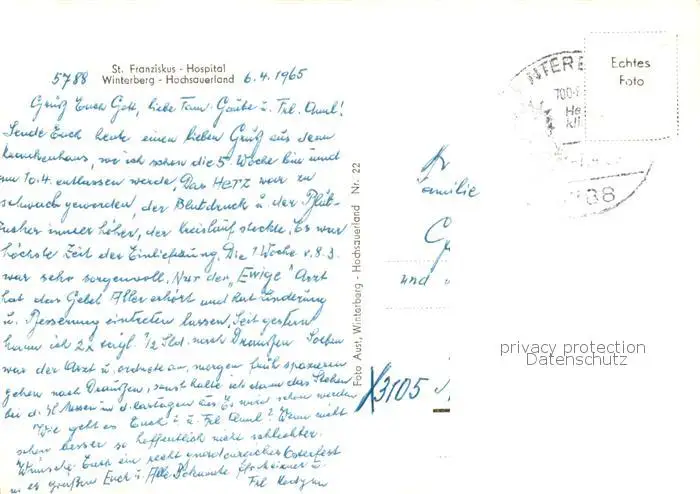 St. Franziskus - Hospital
5788 Winterberg - Hochsauerland 6.4.1965
Grüß Euch Gott, liebe Fam. u. Frl.
Sende Euch heute einen lieben Gruß aus dem
Krankenhaus, wo ich schon die 5. Woche bin und
am 10.4. entlassen werde. Das Herz war zu
schwach geworden, der Blutdruck u. der Blut-
zucker immer höher, der Kreislauf stockte. Es war
höchste Zeit der Einlieferung. Die 1. Woche v. 8.3.
war sehr sorgenvoll. Nur der "Ewige" Arzt
hat das Gebet Aller erhört und hat Linderung
u. Besserung eintreten lassen. Seit gestern
kann ich 2x tägl. 1/2 Std. nach Draußen. Soeben
war der Arzt u. ordnete an, morgen früh spazieren
gehen nach Draußen, sonst halte ich dann das Stehen
bei d. Hl. Messen in d. Kartagen aus. Es wird schon werden
Wie geht es Euch? u. Frl. Wenn nicht
schon besser so hoffentlich nicht schlechter.
Wünsche Euch ein recht Osterfest
u. es grüßen Euch u. Alle Bekannte
Frl.
Foto Aust, Winterberg - Hochsauerland Nr. 22
Echtes
Foto
NTERB
700
He
kli
88
Familie
G
und
3105
privacy protection
Datenschutz